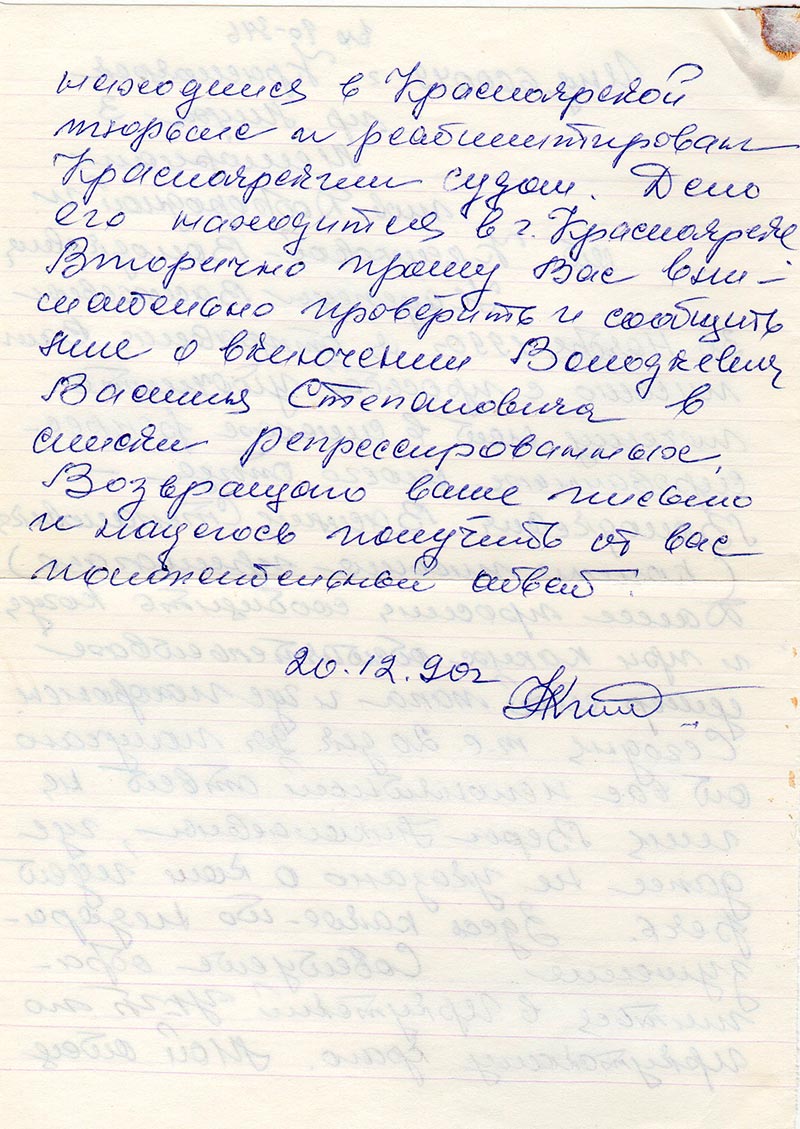 находился в Красноярской
тюрьме и реабилитирован
Красноярским судом. Дело
его находится в г. Красноярске
Вторично прошу Вас вни-
мательно проверить и сообщить
мне о включении Володкевич
Василия Степановича в
списки репрессированных.
Возвращаю ваше письмо
и надеюсь получить от вас
положительный ответ
20.12.90г